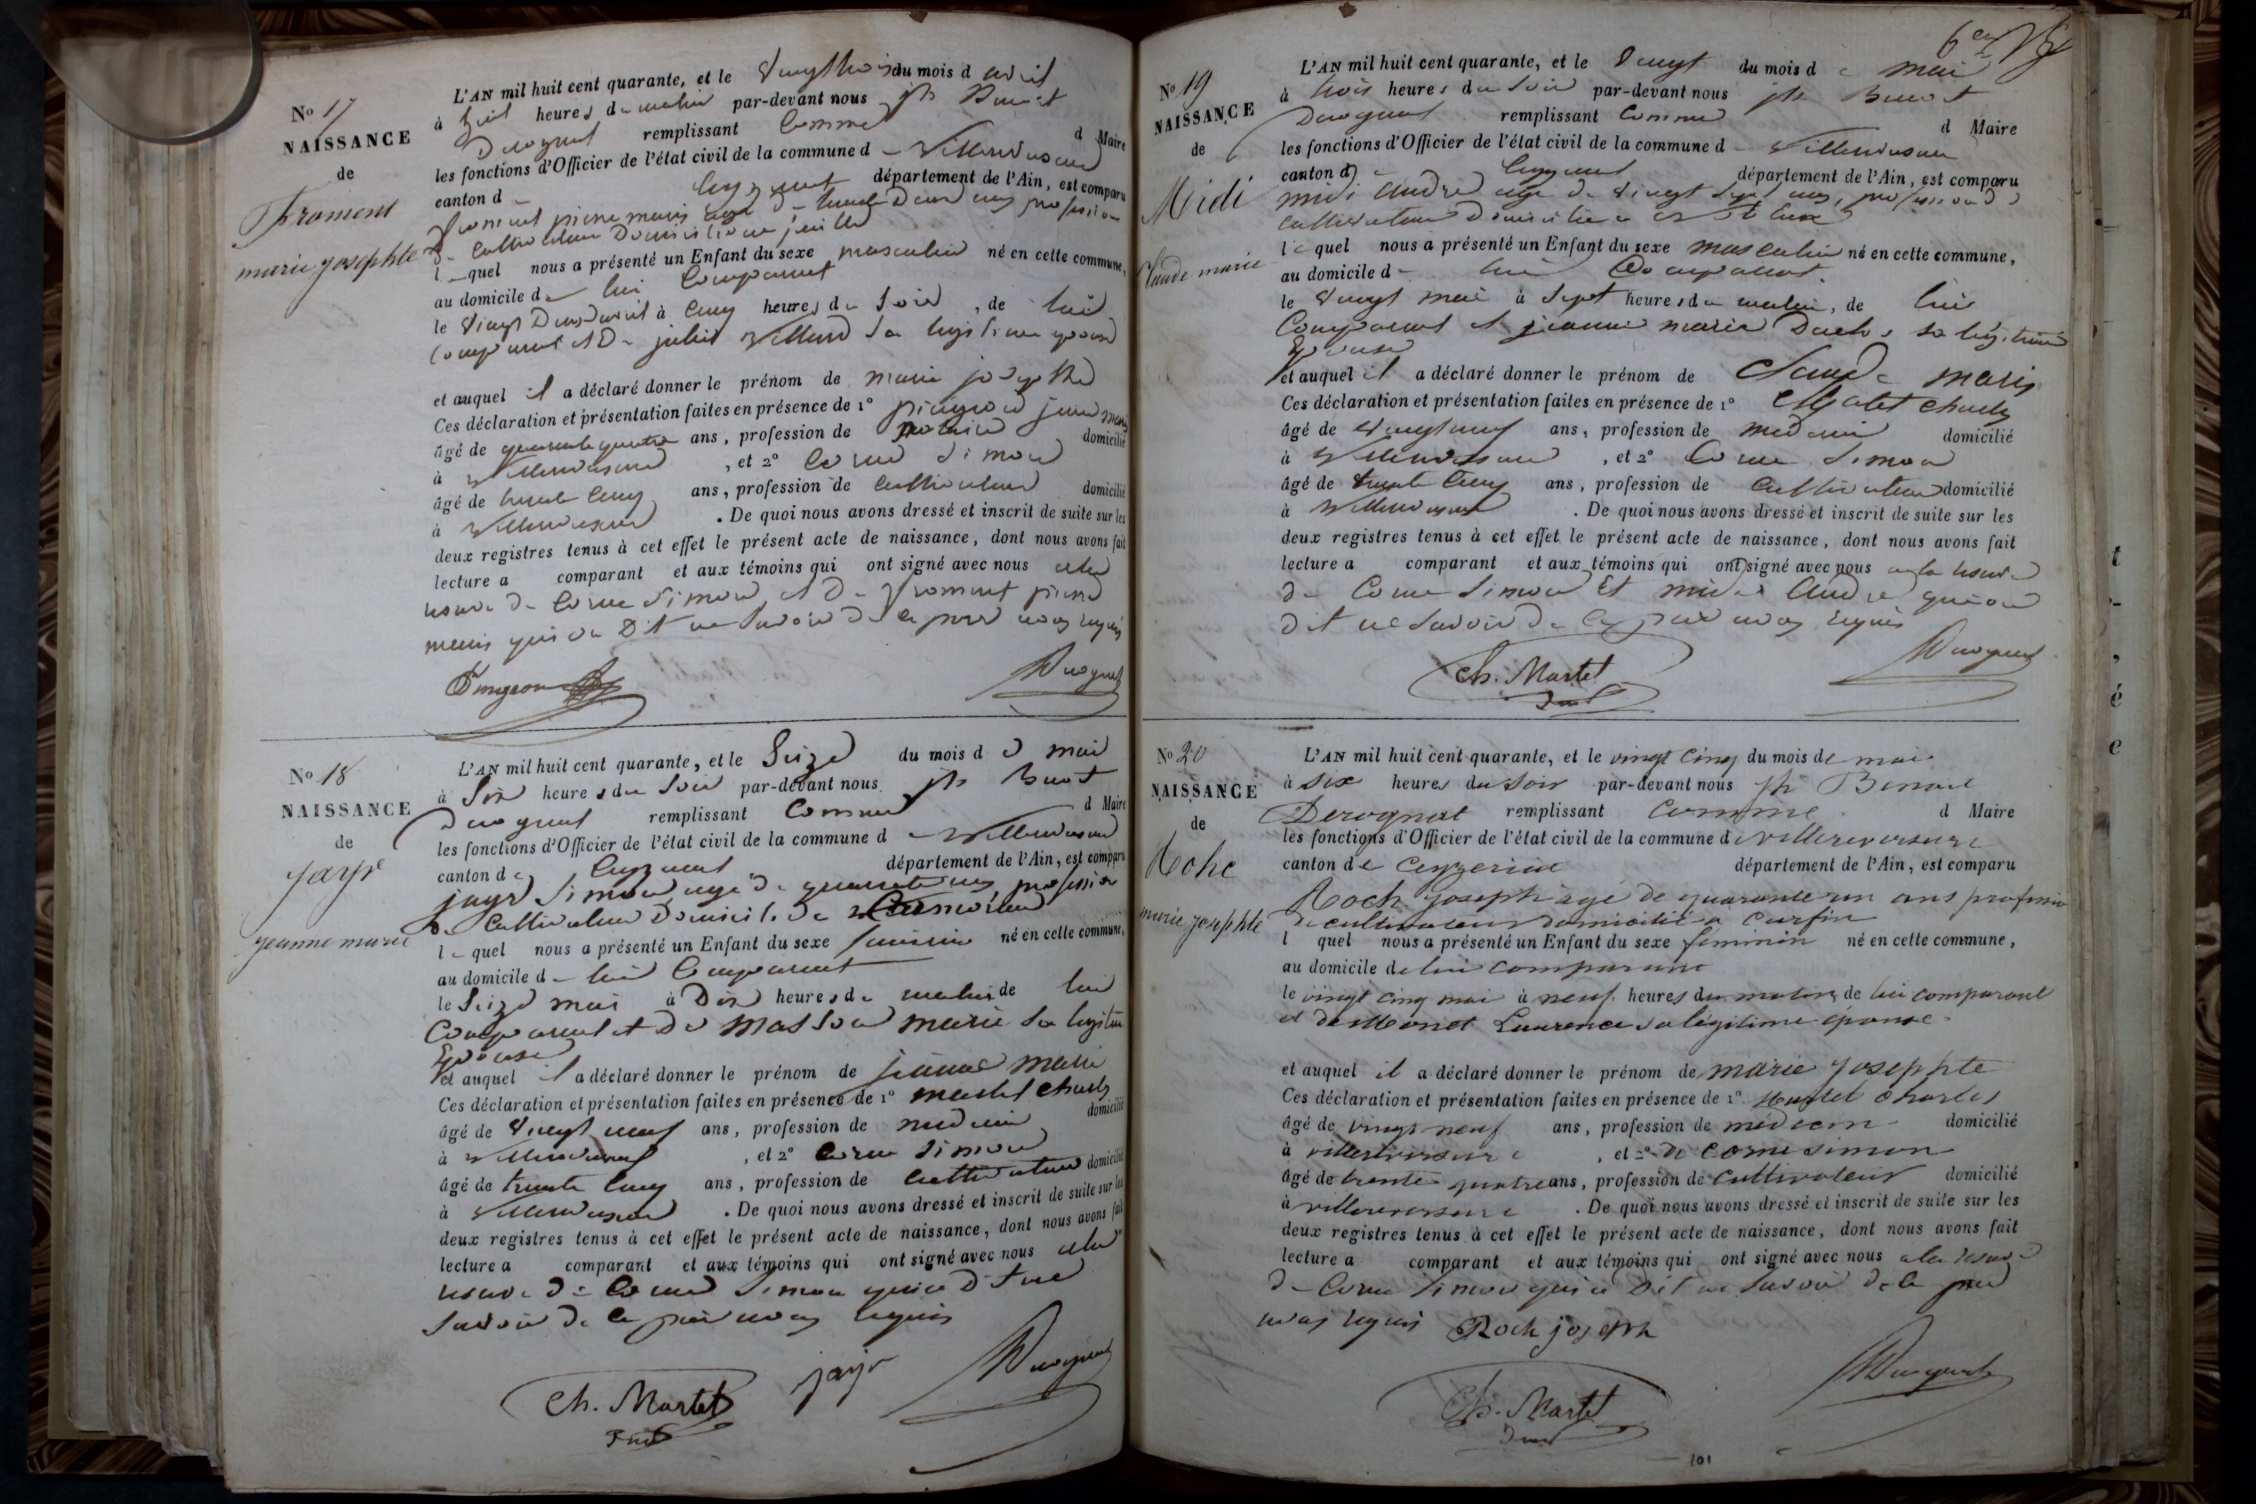 No 17
NAISSANCE
de
Froment
marie josephte
L'AN mil huit cent quarante, et le Vingt trois du mois d avril
à huit heures du matin par-devant nous jh Benoit
Derognat remplissant Comme d Maire
les fonctions d'Officier de l'état civil de la commune d Villereversure
canton d Ceyzeriat département de l'Ain, est comparu
froment pierre marie agé de trente Deux ans profession
de Cultivateur Domicilié
l quel nous a présenté un Enfant du sexe masculin né en cette commune,
au domicile de lui Comparant
le Vingt Deux avril à Cinq heures du Soir, de lui
Comparant et De Villard Sa legitime epouse
et auquel il a déclaré donner le prénom de marie josephte
Ces déclaration et présentation faites en présence de 1°
âgé de quarante quatre ans, profession de notaire domicilié
à Villereversure, et 2° Corne Simon
âgé de trente Cinq ans, profession de Cultivateur domicilié
à Villereversure. De quoi nous avons dressé et inscrit de suite sur les
deux registres tenus à cet effet le présent acte de naissance, dont nous avons fait
lecture a comparant et aux témoins qui ont signé avec nous a la
reserve de Corne Simon et De froment pierre
marie qui on Dit ne Savoir De ce par nous requis
Derognat
No 18
NAISSANCE
de
jayr
jeanne marie
L'AN mil huit cent quarante, et le Seize du mois de mai
à Six heures du Soir par-devant nous jh Benoit
Derognat remplissant Comme d Maire
les fonctions d'Officier de l'état civil de la commune d Villereversure
canton de Ceyzeriat département de l'Ain, est comparu
jayr Simon agé de quarante ans, profession
de Cultivateur Domicilié
le quel nous a présenté un Enfant du sexe feminin né en cette commune,
au domicile de lui Comparant
le Seize mai à Dix heures du matin de lui
Comparant et De Masson marie Sa legitime
Epouse
et auquel il a déclaré donner le prénom de jeanne marie
Ces déclaration et présentation faites en présence de 1° martel Charles
âgé de Vingt neuf ans, profession de medecin domicilié
à Villereversure, et 2° Corne Simon
âgé de trente Cinq ans, profession de Cultivateur domicilié
à Villereversure. De quoi nous avons dressé et inscrit de suite sur les
deux registres tenus à cet effet le présent acte de naissance, dont nous avons fait
lecture a comparant et aux témoins qui ont signé avec nous a la
reserve de Corne Simon qui a Dit ne
Savoir De ce par nous requis
Ch. Martel jayr Derognat
6
No 19
NAISSANCE
de
Midi
Claude marie
L'AN mil huit cent quarante, et le Vingt du mois de mai
à trois heures du Soir par-devant nous jh Benoit
Derognat remplissant Comme d Maire
les fonctions d'Officier de l'état civil de la commune d Villereversure
canton d Ceyzeriat département de l'Ain, est comparu
midi andré age de Vingt Sept ans, profession de
cultivateur Domicilié
le quel nous a présenté un Enfant du sexe masculin né en cette commune,
au domicile de lui Comparant
le Vingt mai à Sept heures du matin, de lui
Comparant et jeanne marie sa légitime
Epouse
et auquel il a déclaré donner le prénom de Claude marie
Ces déclaration et présentation faites en présence de 1° Martel Charles
âgé de Vingt neuf ans, profession de medecin domicilié
à Villereversure, et 2° Corne Simon
âgé de trente Cinq ans, profession de Cultivateur domicilié
à Villereversure. De quoi nous avons dressé et inscrit de suite sur les
deux registres tenus à cet effet le présent acte de naissance, dont nous avons fait
lecture a comparant et aux témoins qui ont signé avec nous a la reserve
de Corne Simon Et midi André qui on
dit ne Savoir De ce par nous requis
Ch. Martel Derognat
No 20
NAISSANCE
de
Rohc
marie josephte
L'AN mil huit cent quarante, et le vingt cinq du mois de mai
à six heures du soir par-devant nous jh Benoit
Derognat remplissant comme d Maire
les fonctions d'Officier de l'état civil de la commune de villereversure
canton de Ceyzeriat département de l'Ain, est comparu
Roch Joseph agé de quarante un ans profession
de cultivateur domicilié a Curfin
l quel nous a présenté un Enfant du sexe féminin né en cette commune,
au domicile de lui comparant
le vingt cinq mai à neuf heures du matin, de lui comparant
et de Monet Laurence sa légitime epouse
et auquel il a déclaré donner le prénom de marie Joseppte
Ces déclaration et présentation faites en présence de 1° Martel Charles
âgé de vingt neuf ans, profession de médecin domicilié
à villereversure, et 2° De Corne simon
âgé de trente quatre ans, profession de Cultivateur domicilié
à villereversure. De quoi nous avons dressé et inscrit de suite sur les
deux registres tenus à cet effet le présent acte de naissance, dont nous avons fait
lecture a comparant et aux témoins qui ont signé avec nous a la reserve
de Corne Simon qui a Dit ne Savoir De ce par
nous requis Roch joseph
Ch. Martel Derognat
101